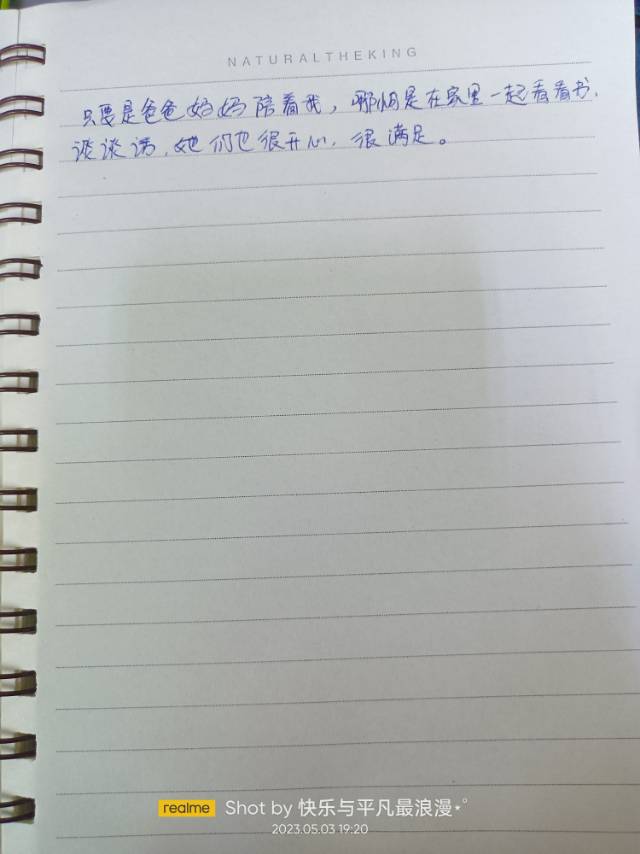 NATURALTHEKING
只要是爸爸妈妈陪着我，哪怕是在家里一起看看书，
谈谈话，她们也很开心，很满足。
realme Shot by 快乐与平凡最浪漫⋆°
2023.05.03 19:20